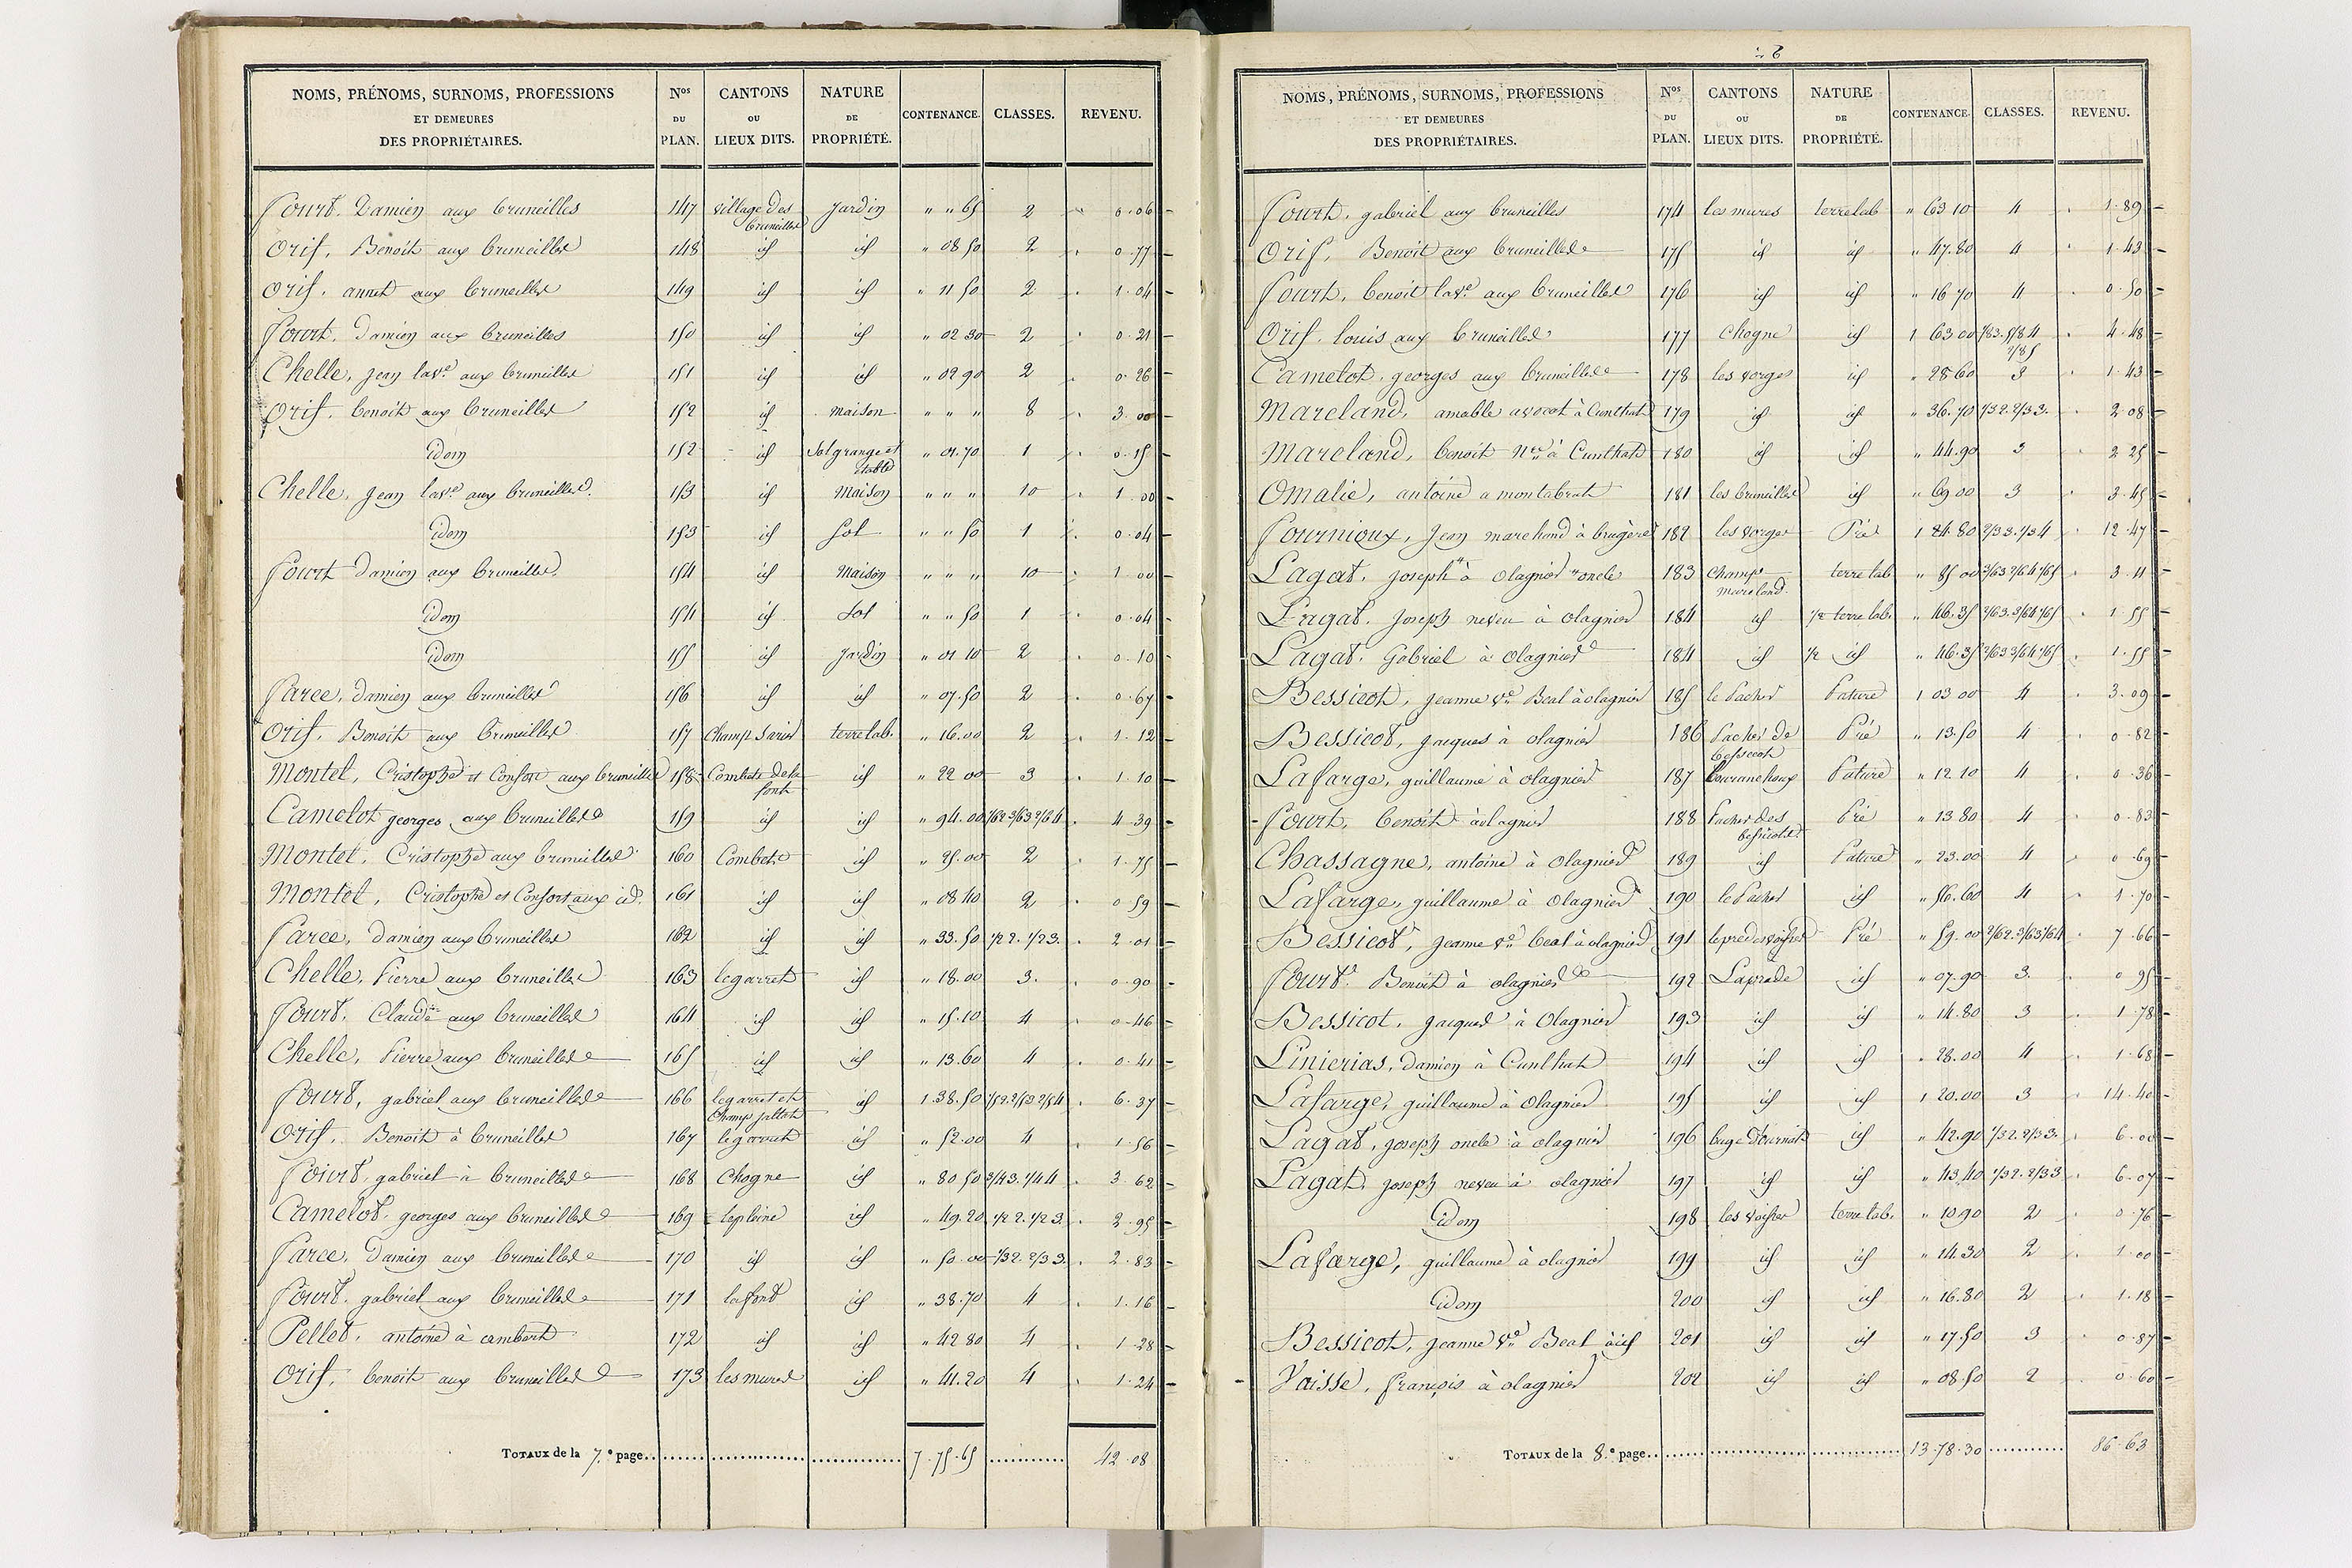 NOMS, PRÉNOMS, SURNOMS, PROFESSIONS ET DEMEURES DES PROPRIÉTAIRES. Nos DU PLAN. CANTONS OU LIEUX DITS. NATURE DE PROPRIÉTÉ. CONTENANCE. CLASSES. REVENU.
Court. Damien aux bruneilles 147 village des bruneilles Jardin " " 65 2 " 0.06
Orif, Benoit aux bruneilles 148 id id " 08 50 2 0.77
Orif. annet aux bruneilles 149 id id " 11 50 2 1.04
Court. Damien aux bruneilles 150 id id " 02 30 2 0.21
Chelle, Jean lavé aux bruneilles 151 id id " 02 90 2 0.26
Orif. benoit aux bruneilles 152 id maison " " " 8 3.00
idem 152 id Sol grange et étable " 01.70 1 0.15
Chelle, Jean lavé aux bruneilles. 153 id Maison " " " 10 1.00
idem 153 id Sol " " 50 1 0.04
Court Damien aux bruneilles 154 id Maison " " " 10 1.00
idem 154 id Sol " " 50 1 0.04
idem 155 id Jardin " 01 10 2 0.10
Farce, Damien aux bruneilles 156 id id " 07.50 2 0.67
Orif, Benoit aux bruneilles 157 Champ Sarier terre lab. " 16.00 2 1.12
Montel, Cristophe et Consort aux bruneilles 158 Combete de la font id " 22 00 3 1.10
Camelot georges aux bruneilles 159 id id " 94.00 1/62 3/63 2/64 4.39
Montel, Cristophe aux bruneilles 160 Combete id " 25.00 2 1.75
Montel, Cristophe et Consort aux id. 161 id id " 08 40 2 0.59
Farce, Damien aux bruneilles 162 id id " 33.50 1/2 2. 1/2 3. 2.01
Chelle, Pierre aux bruneilles 163 legarret id " 18.00 3. 0.90
Court. Claude aux bruneilles 164 id id " 15.10 4 0.46
Chelle, Pierre aux bruneilles 165 id id " 13.60 4 0.41
Court, gabriel aux bruneilles 166 legarret et Champ id 1.38.50 1/52. 2/53 2/54 6.37
Orif. Benoit à bruneilles 167 legarret id " 52.00 4 1.56
Court, gabriel à bruneilles 168 Chogne id " 80 50 3/43. 1/44 3.62
Camelot. georges aux bruneilles 169 lepleine id " 49.20 1/2 2. 1/2 3. 2.95
Farce, Damien aux bruneilles 170 id id " 50.00 1/32. 2/33. 2.83
Court. gabriel aux bruneilles 171 lafont id " 38.70 4 1.16
Pellet. antoine à cambert 172 id id " 42 80 4 1.28
Orif, benoit aux bruneilles 173 lesmures id " 41.20 4 1.24
TOTAUX de la 7.e page 7.75.65 42.08
NOMS, PRÉNOMS, SURNOMS, PROFESSIONS ET DEMEURES DES PROPRIÉTAIRES. Nos DU PLAN. CANTONS OU LIEUX DITS. NATURE DE PROPRIÉTÉ. CONTENANCE. CLASSES. REVENU.
Court. gabriel aux bruneilles 174 les mures terre lab " 63 10 4 1.89
Orif, Benoit aux bruneilles 175 id id " 47.80 4 1.43
Court, benoit lavé aux bruneilles 176 id id " 16 70 4 0.50
Orif. louis aux bruneilles 177 Chogne id 1 63 00 1/83. 5/84 2/85 4.48
Camelot. georges aux bruneilles 178 les vorges id " 28 60 3 1.43
Mareland, amable avocat à Cunlhat 179 id id " 36.70 1/32. 2/33. 2.08
Mareland, benoit Nre à Cunlhat 180 id id " 44.90 3 2 25
Omalie, antoine a montabrat 181 les bruneilles id " 69 00 3 3.45
Fournioux, Jean marchand à brugère 182 les vorges Pré 1 84.80 2/33. 1/34 12.47
Lagat. Joseph à Olagnier oncle 183 Champ mareland. terre lab " 85 00 3/63 2/64 1/65 3.11
Lagat. Joseph neveu à Olagnier 184 id 1/2 terre lab. " 46.35 2/63. 3/64 1/65 1.55
Lagat. Gabriel à Olagnier 184 id 1/2 id " 46.35 2/63 3/64 1/65 1.55
Bessicot, Jeanne Ve Beal à olagnier 185 le Pacher Pature 1 03 00 4 3.09
Bessicot, Jacques à olagnier 186 Pacher de bessicot Pré " 13.50 4 0.82
Lafarge, guillaume à olagnier 187 Pature " 12 10 4 0.36
Court, benoit à olagnier 188 Pacher des bessicots Pré " 13.80 4 0.83
Chassagne, antoine à olagnier 189 id Pature " 23.00 4 0.69
Lafarge, guillaume à olagnier 190 le Pacher id " 56.60 4 1.70
Bessicot, Jeanne Ve beal à olagnier 191 Pré " 59.00 2/62. 3/63 1/64 7.66
Court Benoit à olagnier 192 Laprade id " 07.90 3. 0.95
Bessicot, Jacques à Olagnier 193 id id " 14.80 3 1.78
Linierias, Damien à Cunlhat 194 id id " 28.00 4 1.68
Lafarge, guillaume à Olagnier 195 id id 1 20.00 3 14.40
Lagat, Joseph oncle à olagnier 196 id " 42.90 1/32. 2/33. 6.00
Lagat, Joseph neveu à olagnier 197 id id " 43.40 1/32. 2/33 6.07
idem 198 terre lab. " 10.90 2 0.76
Lafarge, guillaume à olagnier 199 id id " 14.30 2 1.00
idem 200 id id " 16.80 2 1.18
Bessicot, Jeanne Ve Beal à id 201 id id " 17.50 3 0.87
Vaisse, françois à olagnier 202 id id " 08.50 2 0.60
TOTAUX de la 8.e page 13.78.30 86.63